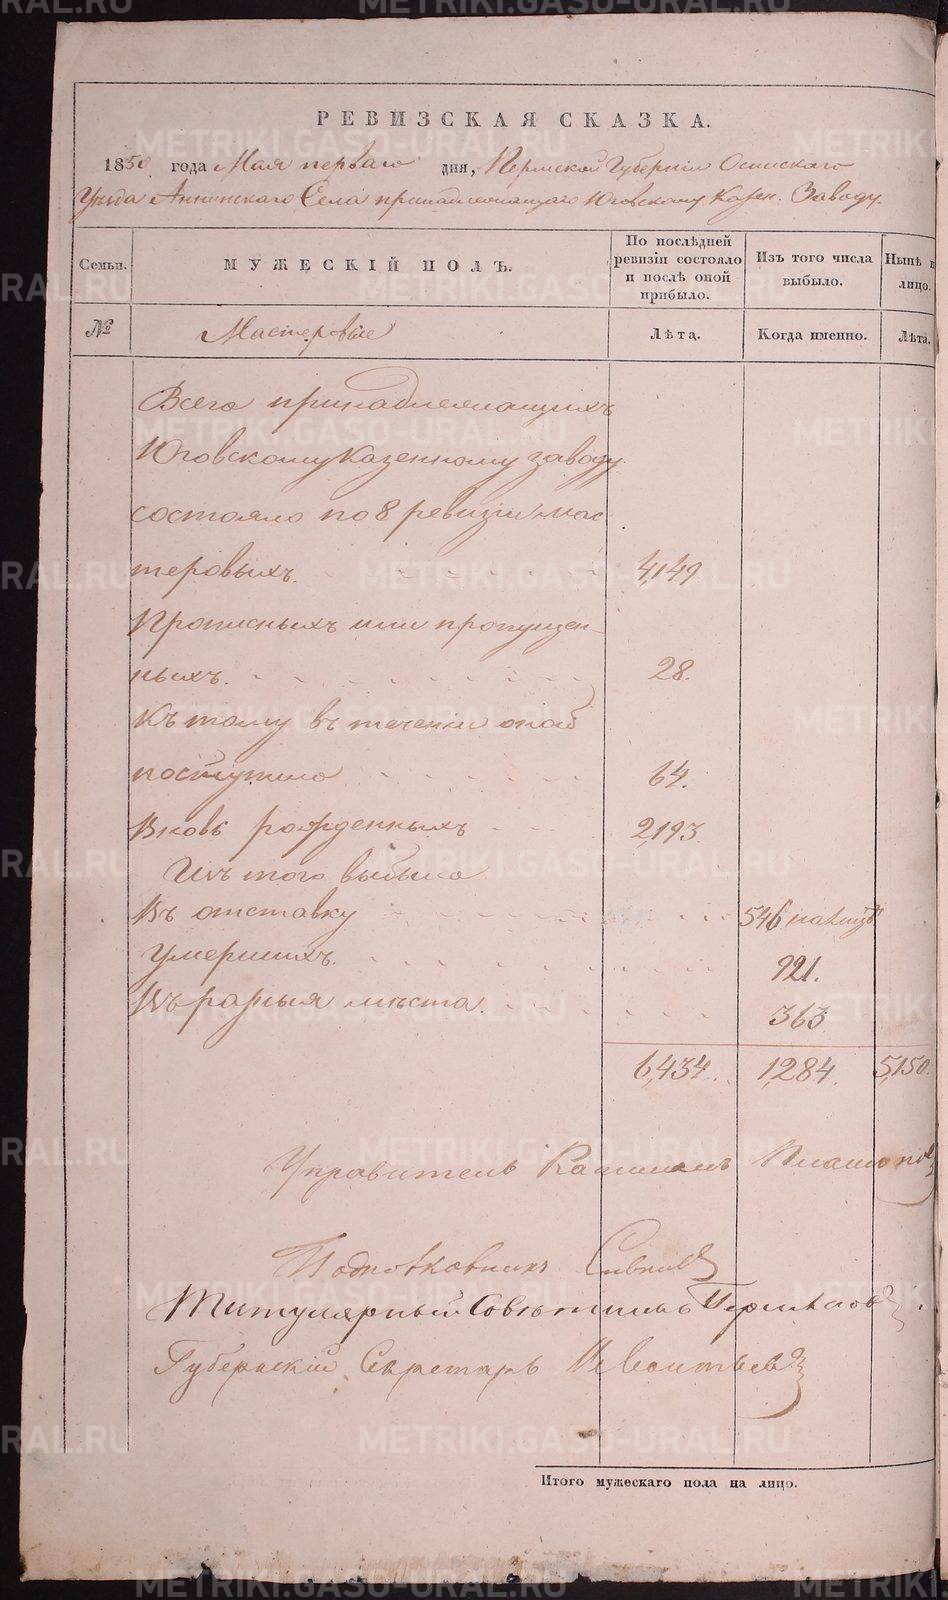 РЕВИЗСКАЯ СКАЗКА.
1850 года Мая перваго дня, Пермской Губернiи Осинскаго
Уѣзда Аннинскаго Села принадлежащаго Юговскому Казен. Заводу.
Семьи. МУЖЕСКIЙ ПОЛЪ. По послѣдней ревизiи состояло и послѣ оной прибыло. Изъ того числа выбыло. Нынѣ н лицо.
№ Мастеровые Лѣта. Когда именно. Лѣта.
Всего принадлежащихъ
Юговскому Казенному заводу
состояло по 8 ревизiи мас
теровыхъ. 4,149
Прописныхъ или пропущен
ныхъ. 28.
Къ тому въ теченiи оной
поступило 64.
Вновь рожденныхъ 2,193.
Изъ того выбыло
Въ отставку 546 на лицо
Умершихъ. 921.
Въ разныя мѣста. 363
6,434. 1,284. 5,150.
Управитель Капитанъ
Подполковникъ
Титулярный Совѣтникъ
Губернскiй Секретарь
Итого мужескаго пола на лицо.
METRIKI.GASO-URAL.RU